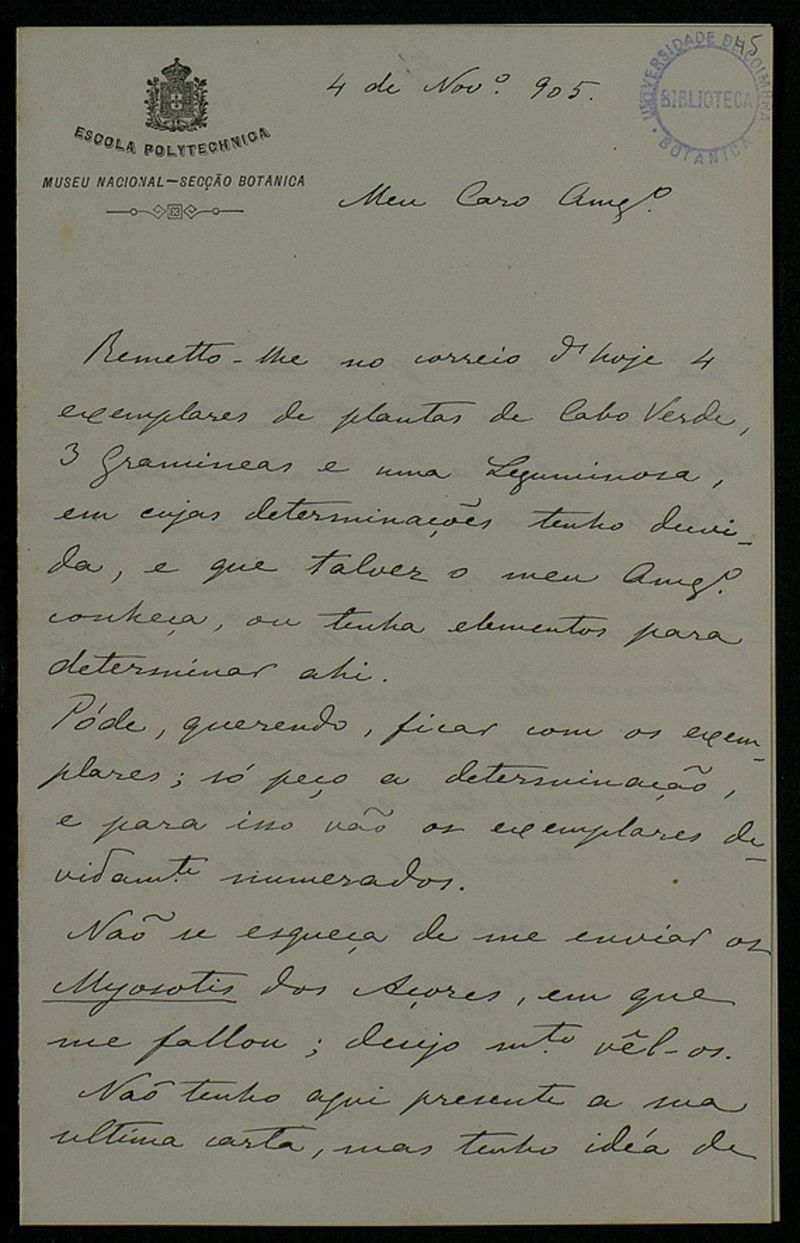 45
UNIVERSIDADE DE COIMBRA
BIBLIOTECA
BOTANICA
ESCOLA POLYTECHNICA
MUSEU NACIONAL—SECÇÃO BOTANICA
4 de Nov.º 905.
Meu Caro Amg.º
Remetto-lhe no correio d'hoje 4
exemplares de plantas de Cabo Verde,
3 Gramineas e uma Leguminosa,
em cujas determinações tenho duvi-
da, e que talvez o meu Amg.º
conheça, ou tenha elementos para
determinar ahi.
Póde, querendo, ficar com os exem-
plares; só peço a determinação,
e para isso vão os exemplares de-
vidam.te numerados.
Não se esqueça de me enviar os
Myosotis dos Açores, em que
me fallou; desejo m.to vêl-os.
Não tenho aqui presente a sua
ultima carta, mas tenho idéa de